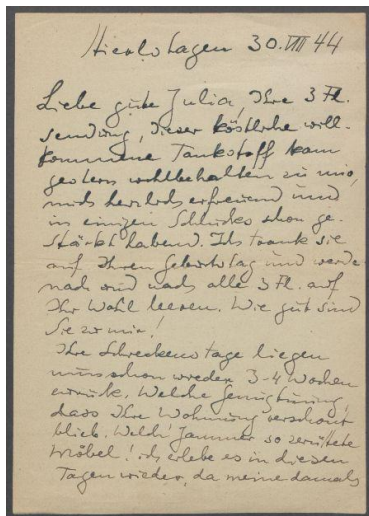 30.VIII 44
Liebe gute Julia, Ihre 3 Fl.
sendung, dieser köstliche will-
kommene Tankstoff kam
gestern wohlbehalten zu mir,
mich herzlich erfreuend und
in einigen Schlucks schon ge-
stärkt habend. Ich trank sie
auf Ihren Geburtstag und werde
nach und nach alle 3 Fl. auf
Ihr Wohl leeren. Wie gut sind
Sie zu mir!
Ihre Schreckenstage liegen
nun schon wieder 3-4 Wochen
zurück. Welche Genugtuung,
dass Ihre Wohnung verschont
blieb. Welch' Jammer so zerrüttete
Möbel! ich erlebe es in diesen
Tagen wieder, da meine damals